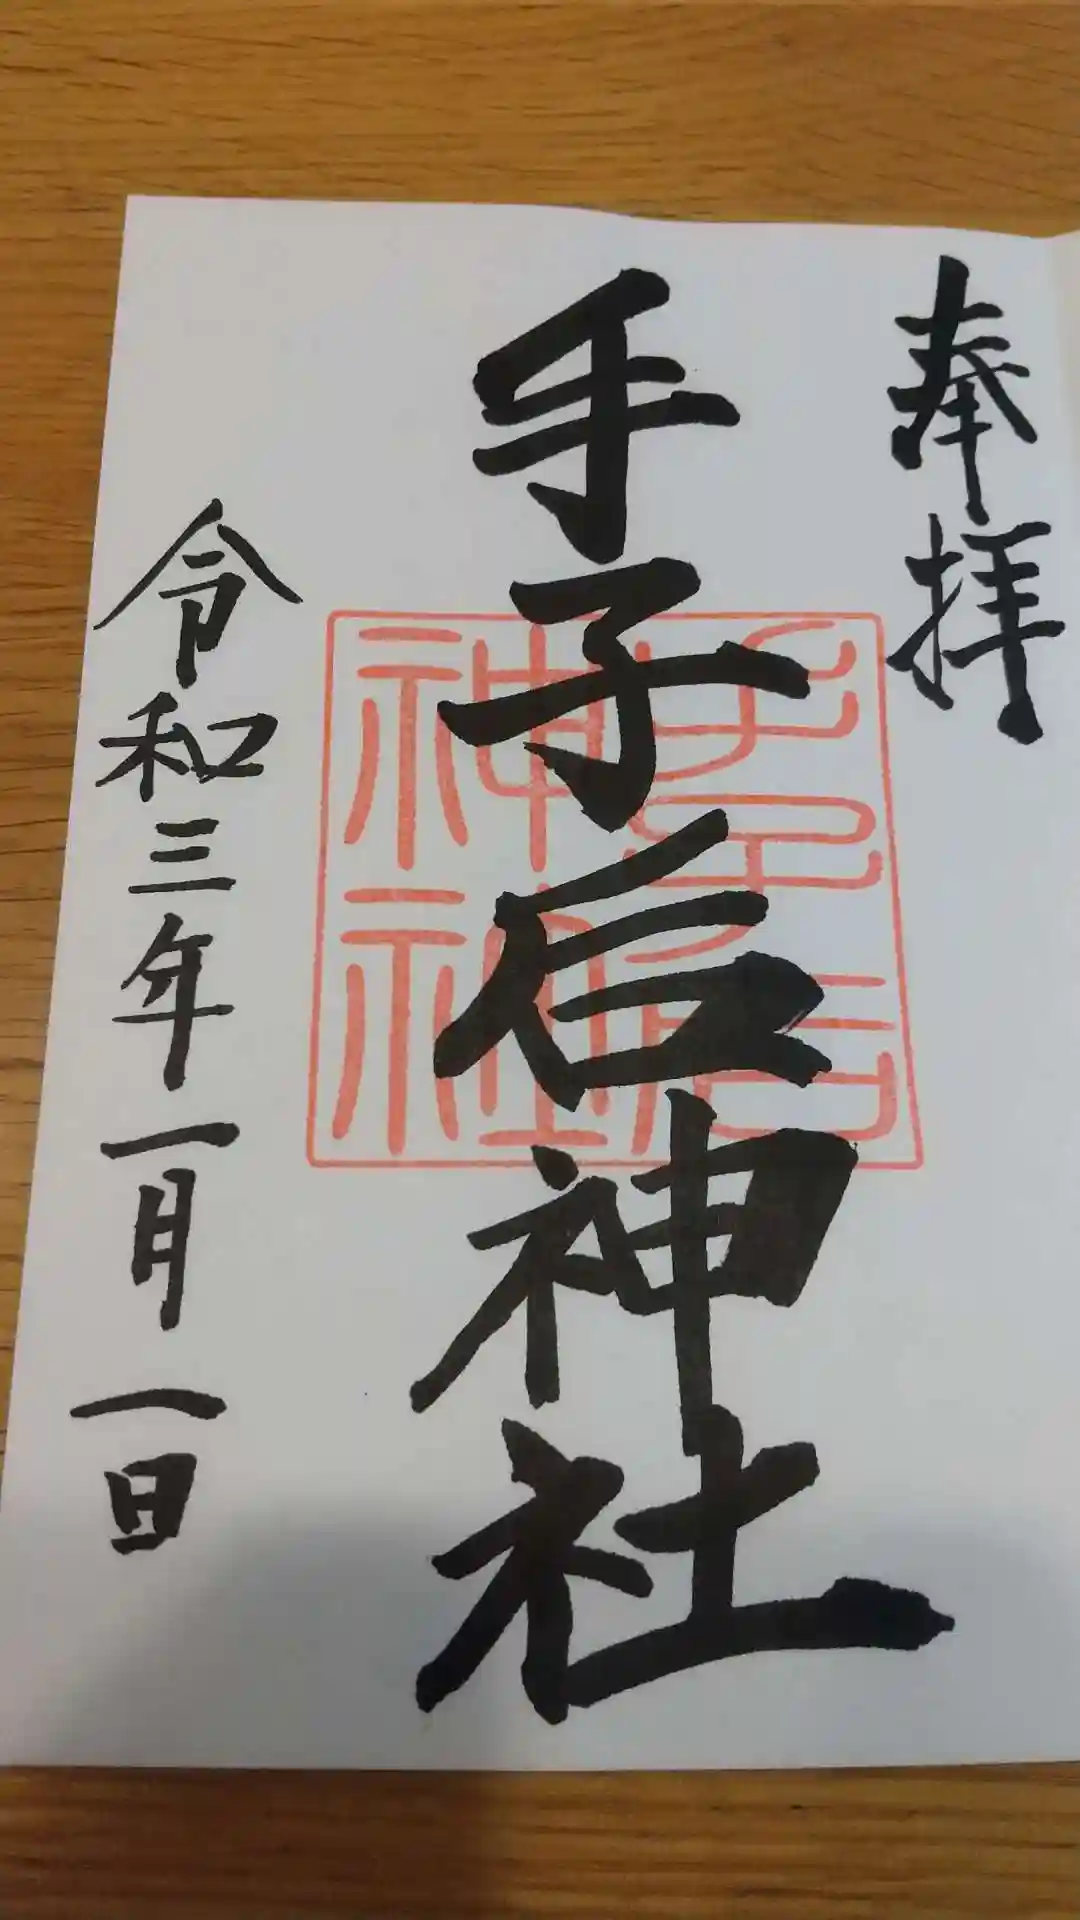 奉拝
手子后神社
手子后
神社
令和三年一月一日